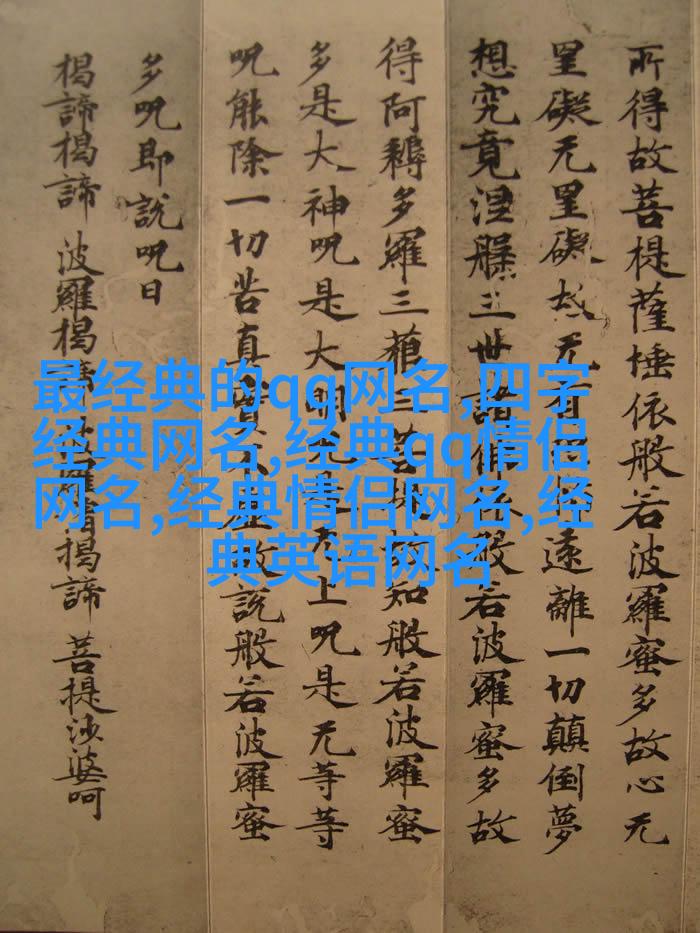 所得故菩提薩埵依般若波羅蜜多故心无
罣礙无罣礙故无有遠離一切顛倒夢
想究竟涅槃三世諸般若波羅蜜多故
得阿耨多羅三藐三故知般若波羅蜜
多是大神呪是大明上呪是无等等
呪能除一切苦真故說般若波羅蜜
多呪即說呪曰
揭諦揭諦 波羅揭揭諦 菩提沙婆呵
最经典的qq网名,四字
经典网名,经典qq情侣
网名,经典情侣网名,经
典英语网名